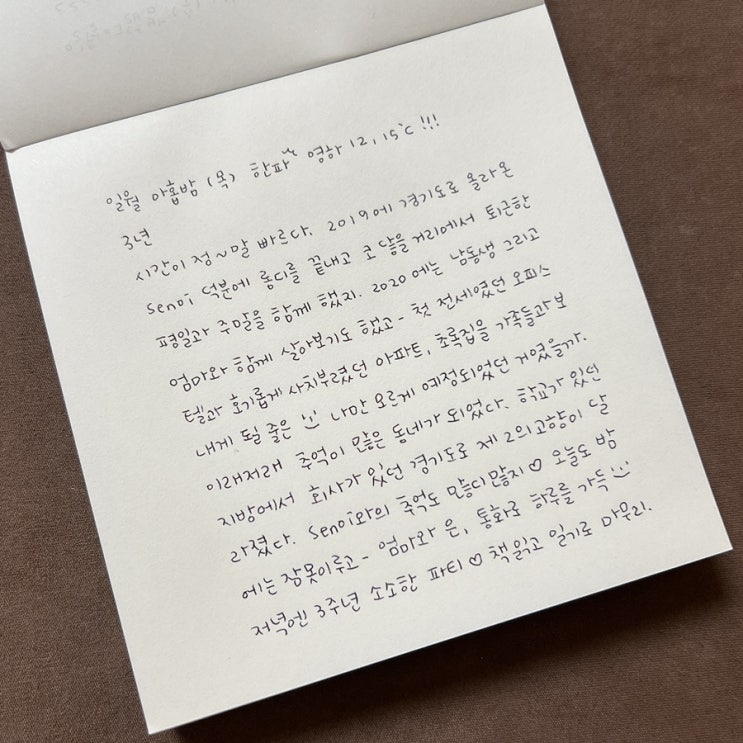 일월 아홉밤 (목) 한파 영하 12, 15℃!!!
3년
시간이 정~말 빠르다. 2019에 경기도로 올라온
Senoi 덕분에 롱디를 끝내고 코 닿을 거리에서 퇴근한
평일과 주말을 함께 했지. 2020에는 남동생 그리고
엄마와 함께 살아보기도 했고- 첫 전세였던 오피스
텔과 호기롭게 사치부렸던 아파트, 초록집을 가족들과 보
내게 될 줄은 나만 모르게 예정되었던 거였을까.
이래저래 추억이 많은 동네가 되었다. 학교가 있던
지방에서 회사가 있던 경기도로 제 2의 고향이 달
라졌다. Senoi와의 추억도 많디많지♡ 오늘도 밤
에는 잠못이루고- 엄마와 은, 통화로 하루를 가득
저녁엔 3주년 소소한 파티♡ 책읽고 일기로 마무리.